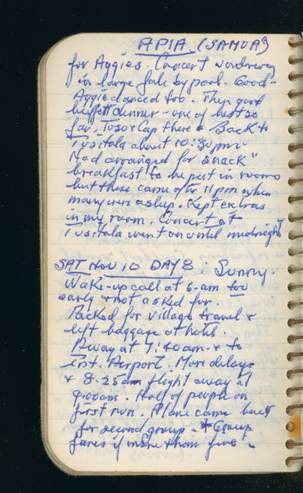 APIA (SAMOA)
for Aggies. Concert underway
in large fale by pool. Good -
Aggie danced too. Then good
buffet dinner - one of best so
far. Tusi tap there & back to
Tusitala about 10:30pm.
Had arranged for snack"
breakfast to be put in rooms
but these came after 11pm when
many were asleep. Kept extras
in my room. Concert at
Tusitala went on until midnight
SAT NOV 10 DAY 8. Sunny.
Wake-up call at 6-am too
early & not asked for.
Packed for village travel &
left baggage at hotel.
Away at 7:40am & to
Airport. More delays
& 8:25am flight away at
9:00am. Half of people on
first run. Plane came back
for second group. Group
fares if more than five -